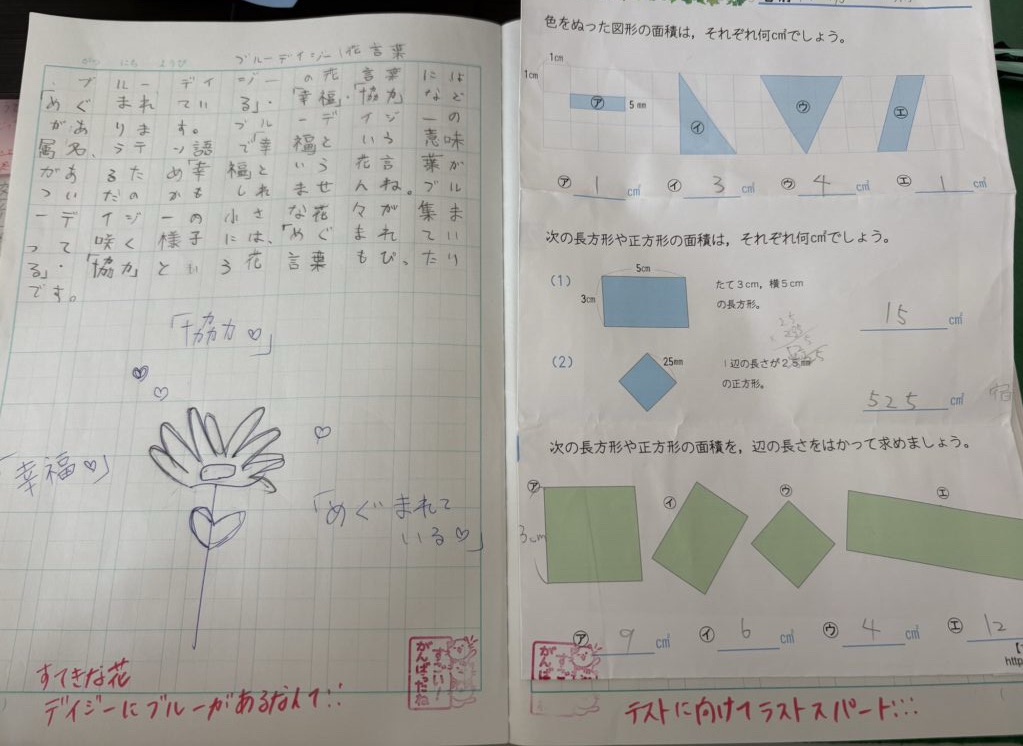 ブルーデイジー花言葉
ブルーデイジーの花言葉には
「めぐまれている」・「幸福」・「協力」など
があります。ブルーデイジーの
属名、ラテン語で「幸福」という意味
があるため「幸福」という花言葉が
ついたのかもしれませんね。ブル
ーデイジーの小さな花々が集ま
って咲く様子には、「めぐまれてい
る」・「協力」という花言葉もぴったり
です。
「協力♡」
「幸福♡」
「めぐまれて
いる♡」
すてきな花
デイジーにブルーがあるなんて!!
すごい!
がんばったね
色をぬった図形の面積は，それぞれ何c㎡でしょう。
1cm
1cm
㋐
5mm
㋑
㋒
㋓
㋐ 1 c㎡ ㋑ 3 c㎡ ㋒ 4 c㎡ ㋓ 1 c㎡
次の長方形や正方形の面積は，それぞれ何c㎡でしょう。
(1)
5cm
3cm
たて3cm，横5cm
の長方形。
15 c㎡
(2)
25mm
1辺の長さが25mm
の正方形。
525 c㎡
次の長方形や正方形の面積を，辺の長さをはかって求めましょう。
㋐
㋑
㋒
㋓
3cm
㋐ 9 c㎡ ㋑ 6 c㎡ ㋒ 4 c㎡ ㋓ 12
http
がんば
テストに向けてラストスパート!!!